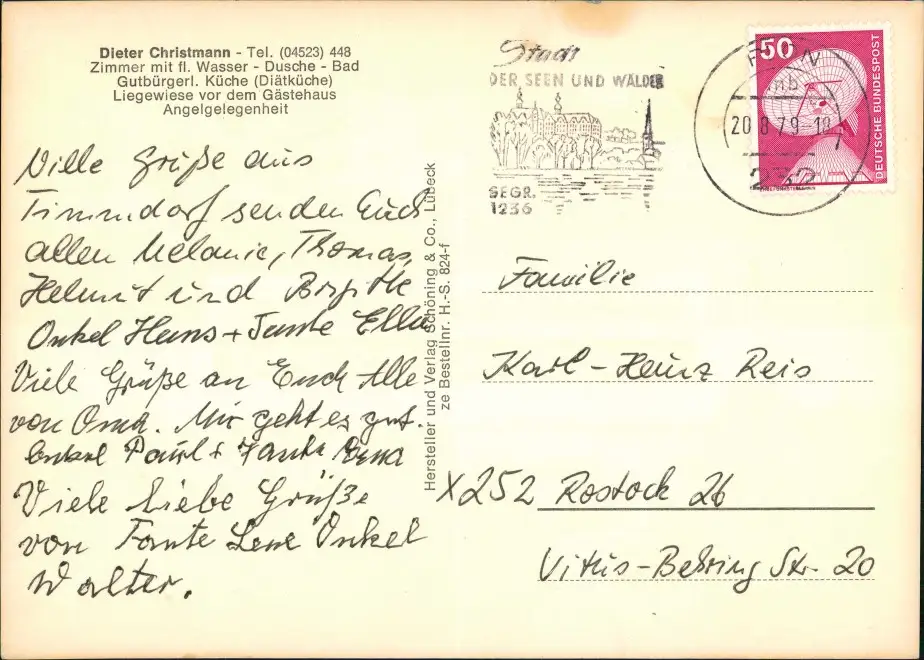 Dieter Christmann - Tel. (04523) 448
Zimmer mit fl. Wasser - Dusche - Bad
Gutbürgerl. Küche (Diätküche)
Liegewiese vor dem Gästehaus
Angelgelegenheit
Viele Grüße aus
Timmdorf senden Euch
allen Melanie, Thomas,
Helmut und Birgitte
Onkel Hans + Tante Ella
Viele Grüße an Euch Alle
von Oma. Mir geht es gut.
Onkel Paul + Tante Erna
Viele liebe Grüße
von Tante Lene Onkel
Walter.
Hersteller und Verlag Schöning & Co., Lübeck
ze Bestellnr. H.-S. 824-f
Stadt
DER SEEN UND WÄLDER
SEGR.
1236
20.8.79-18
50
DEUTSCHE BUNDESPOST
Familie
Karl-Heinz Reis
X252 Rostock 26
Vitus-Behring Str. 20